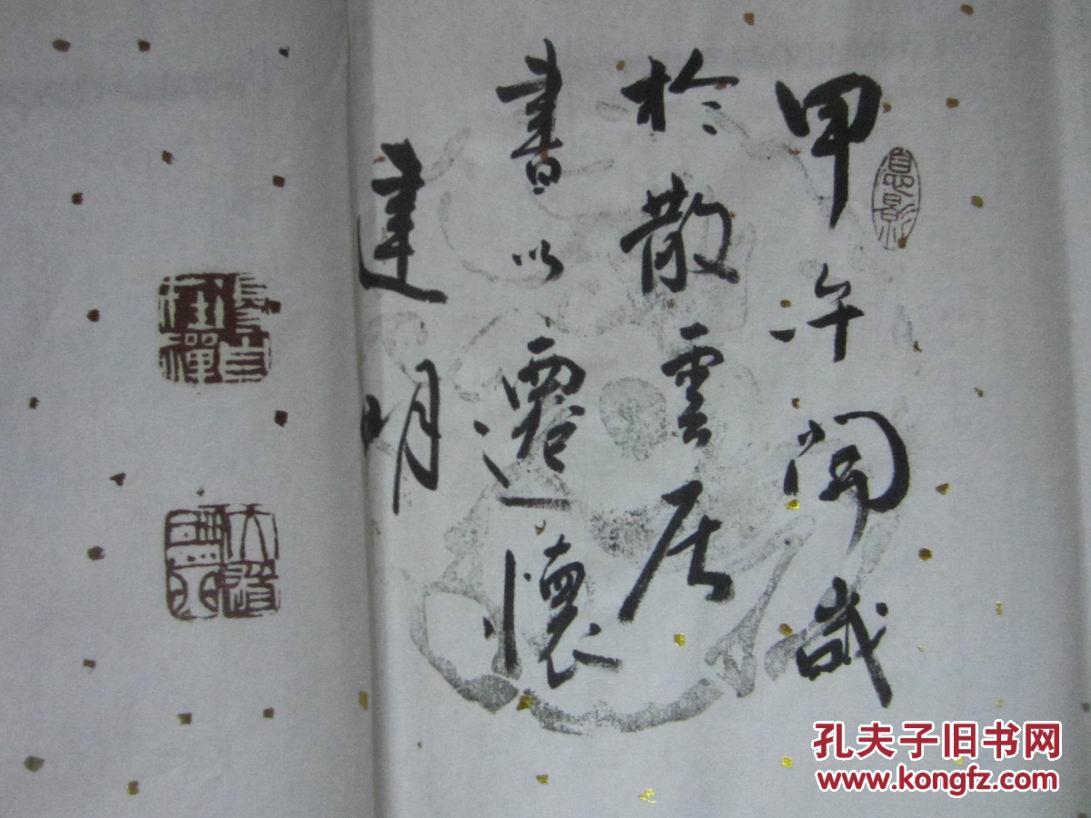 息影
甲午閏歲
於散雲居
書以遷懷
建明
孔夫子旧书网
www.kongfz.com